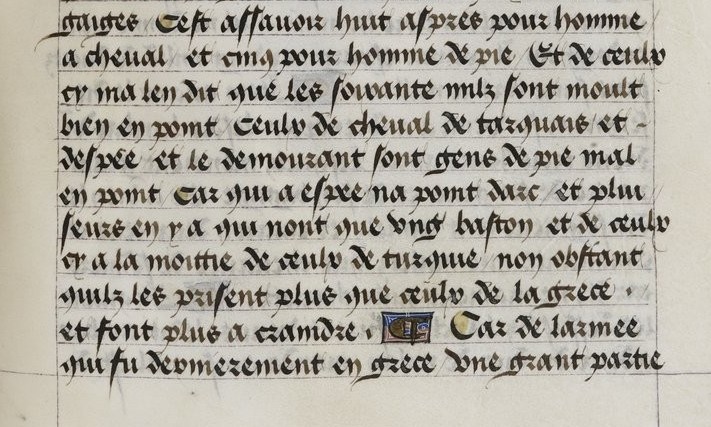 gaiges Cest assauoir huit aspres pour homme
a cheual et cinq pour homme de pie Et de ceulx
cy ma len dit que les soixante milz sont moult
bien en point Ceulx de cheual de tarquais et -
despee et le demourant sont gens de pie mal
en point Car qui a espee na point darc et plui
seurs en y a qui nont que vng baston et de ceulx
cy a la moittie de ceulx de turquie non obstant
quilz les prisent plus que ceulx de la grece .
et sont plus a craindre . Car de larmee
qui fu derrnierement en grece vne grant partie